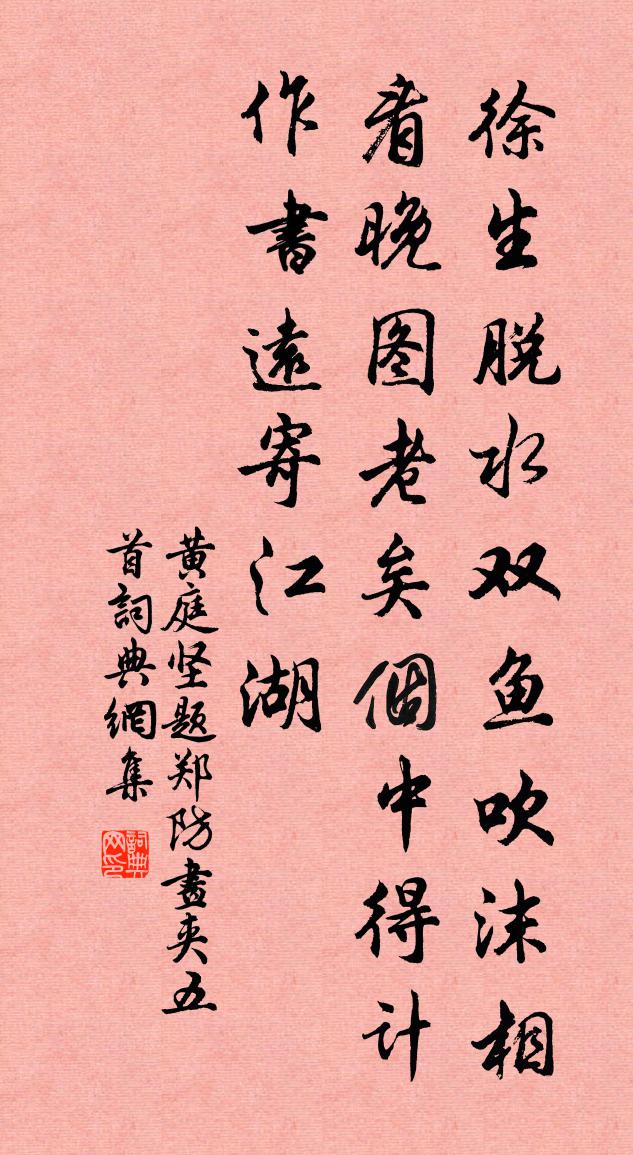 徐生脱水双鱼吹沫相
看晚图老矣個中得计
作書遠寄江湖
黄庭坚题郑防畫夹五
首詞典網集
詞典网印